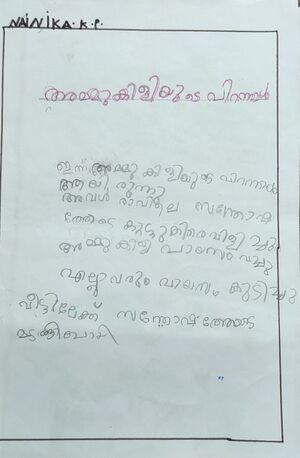 NAINIKA.K.P.
അമ്മുകിളിയുടെ പിറന്നാൾ
ഇന്ന് അമ്മു കിളിയുടെ പിറന്നാൾ
ആയി രുന്നു
അവൾ രാവിലെ സന്തോഷ
ത്തോടെ കൂട്ടുകിരെവിളി ച്ചു
അമ്മുകിളി പായസം വച്ചു
എല്ലാവരും പായസം കുടിച്ചു
വീട്ടിലേക്ക് സന്തോഷത്തോടെ
മടങ്ങിപോയി